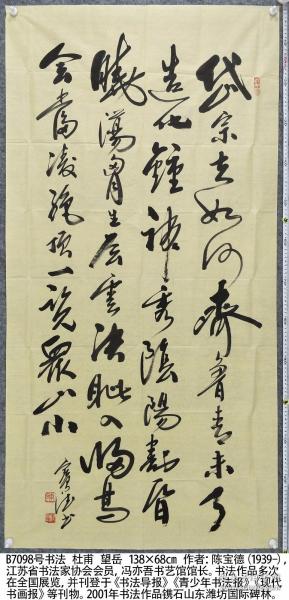 岱宗夫如何齊魯青未了
造化鍾神秀陰陽割昏
曉蕩胸生层雲決眥入歸鳥
會當凌绝頂一览眾山小
寶德書
B7098号书法 杜甫 望岳 138×68㎝ 作者：陈宝德(1939-)，
江苏省书法家协会会员，冯亦吾书艺馆馆长。书法作品多次
在全国展览，并刊登于《书法导报》《青少年书法报》《现代
书画报》等刊物。2001年书法作品镌石山东潍坊国际碑林。